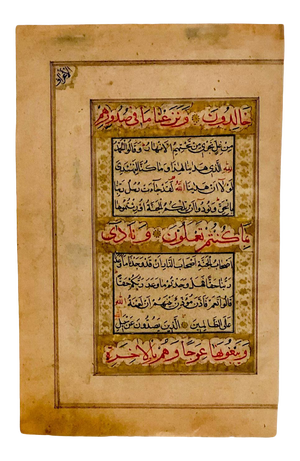 الاعراف
خالدون ونزعنا ما في صدورهم
من غل تجري من تحتهم الانهار وقالوا الحمد
لله الذي هدانا لهذا وما كنا لنهتدي
لولا ان هدانا الله لقد جاءت رسل ربنا
بالحق ونودوا ان تلكم الجنة اورثتموها
بما كنتم تعملون ونادى
اصحاب الجنة اصحاب النار ان قد وجدنا ما وعدنا
ربنا حقا فهل وجدتم ما وعد ربكم حقا
قالوا نعم فاذن مؤذن بينهم ان لعنة
الله على الظالمين الذين يصدون عن سبيل الله
ويبغونها عوجا وهم بالاخرة